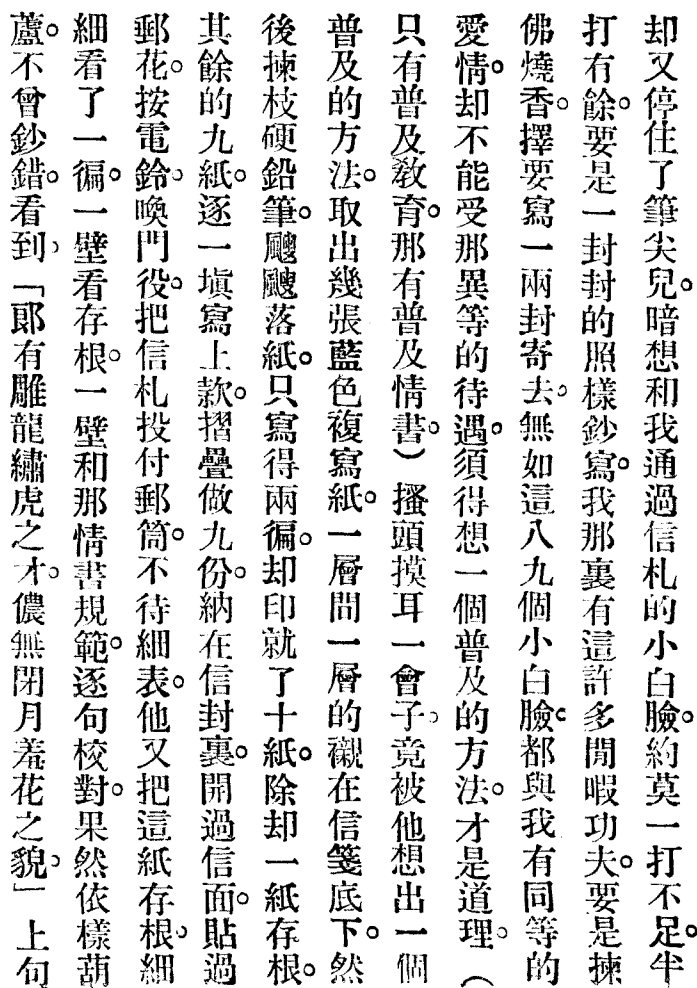 却又停住了筆尖兒。暗想和我通過信札的小白臉。約莫一打不足。半
打有餘。要是一封封的照樣鈔寫。我那裏有這許多閒暇功夫。要是揀
佛燒香。擇要寫一兩封寄去。無如這八九個小白臉。都與我有同等的
愛情。却不能受那異等的待遇。須得想一個普及的方法。才是道理。（
只有普及教育。那有普及情書。）搔頭摸耳一會子。竟被他想出一個
普及的方法。取出幾張藍色複寫紙。一層間一層的襯在信箋底下。然
後揀枝硬鉛筆。颼颼落紙。只寫得兩徧。却印就了十紙。除却一紙存根。
其餘的九紙。逐一塡寫上款。摺疊做九份。納在信封裏。開過信面。貼過
郵花。按電鈴。喚門役。把信札投付郵筒。不待細表。他又把這紙存根。細
細看了一徧。一壁看存根。一壁和那情書規範。逐句校對。果然依樣葫
蘆。不曾鈔錯。看到。「郞有雕龍繡虎之才。儂無閉月羞花之貌。」上句